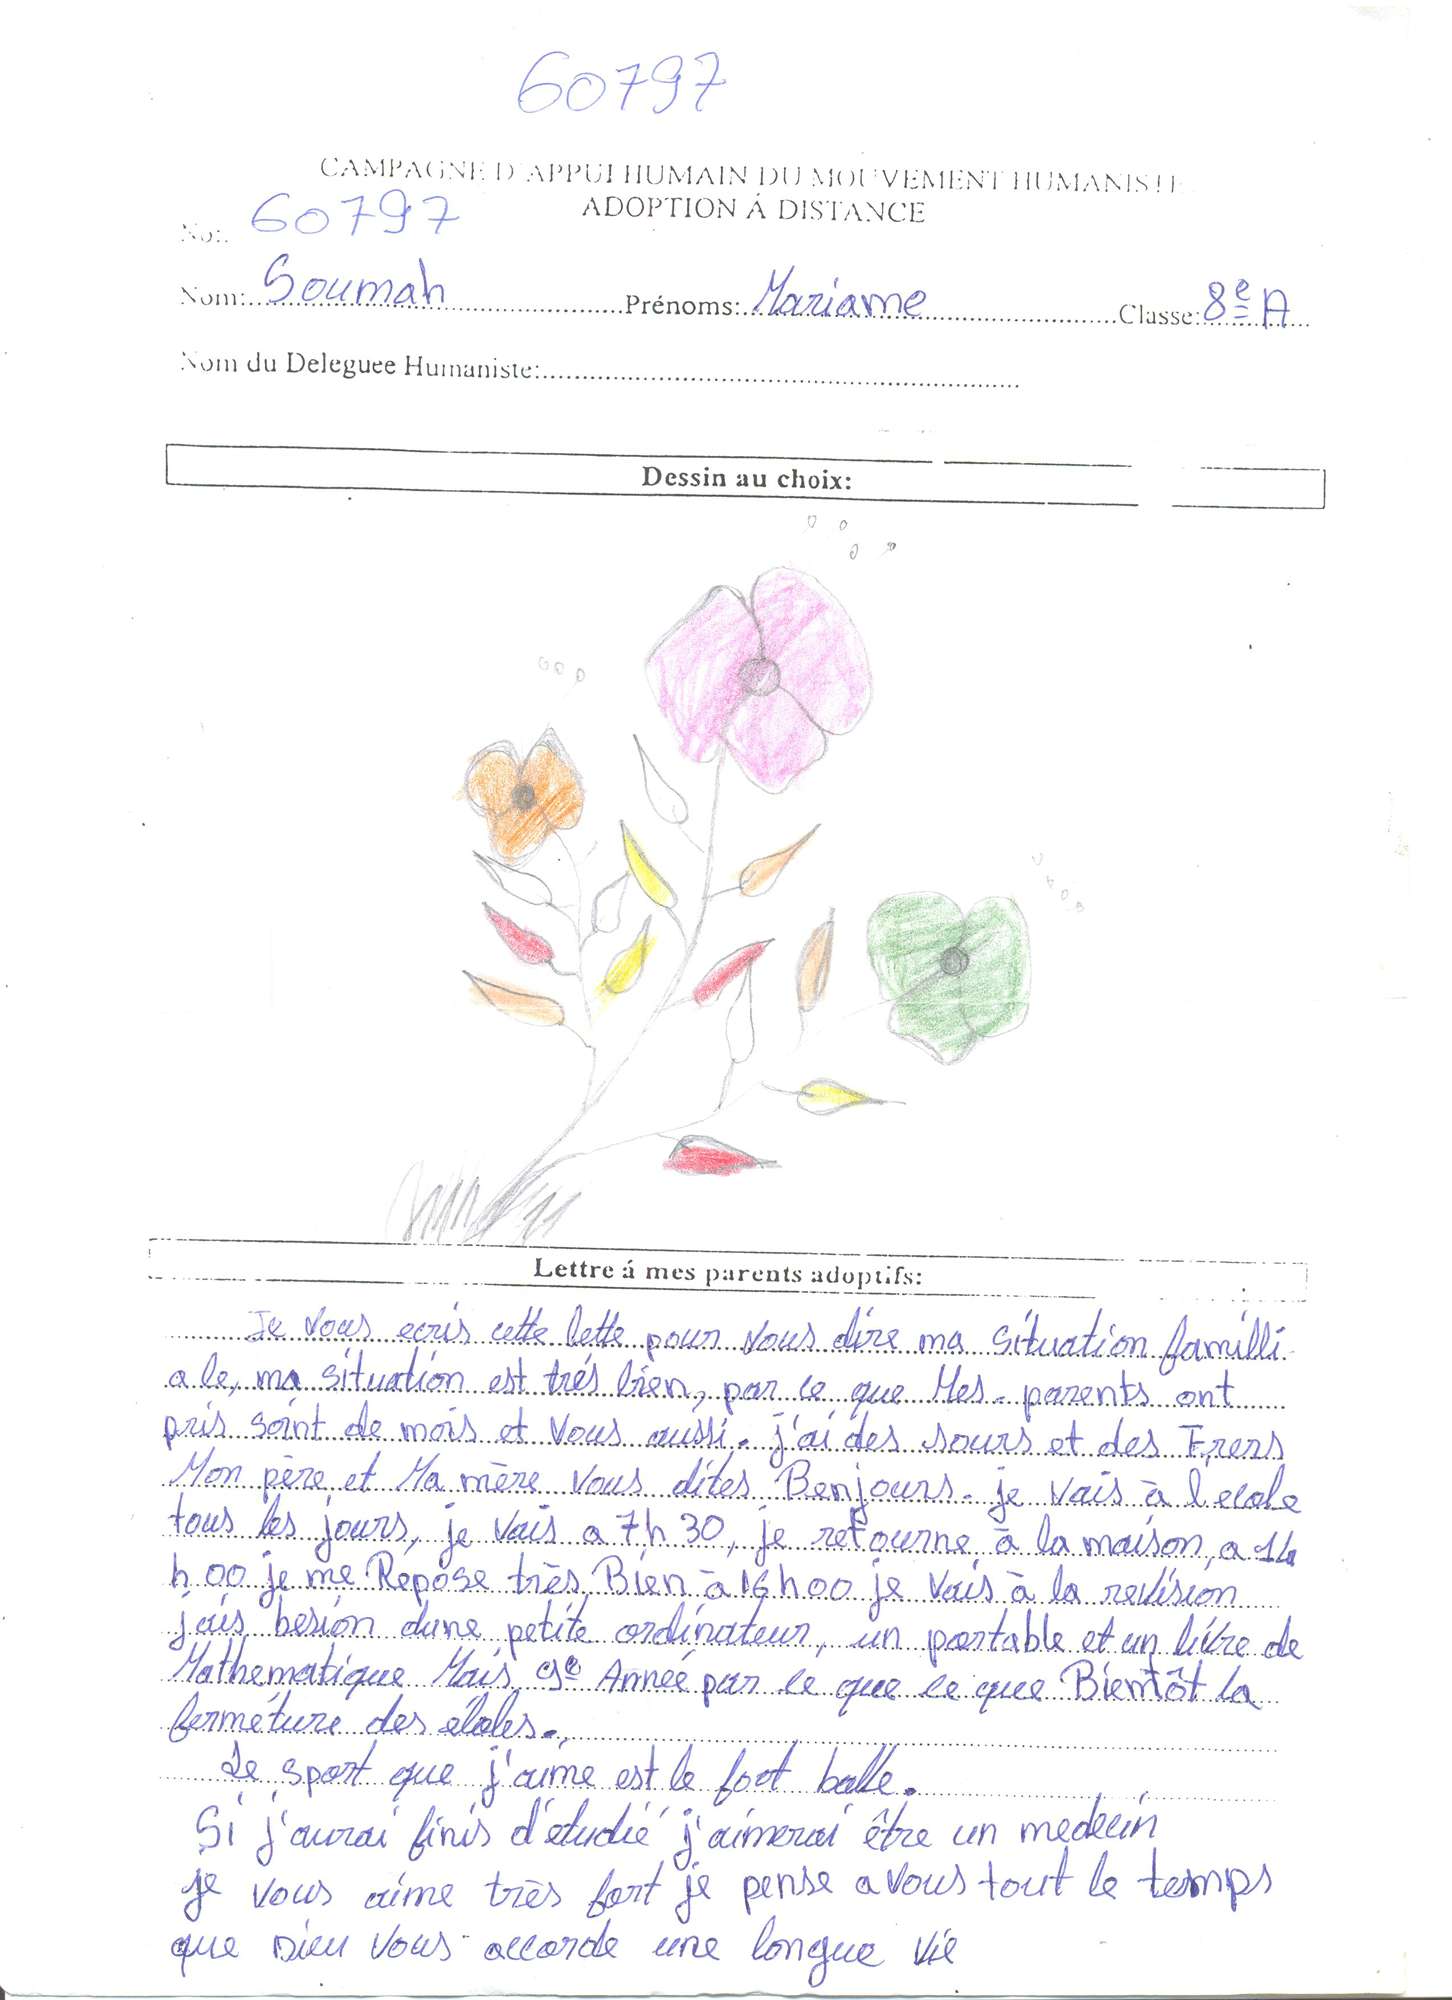 60797
CAMPAGNE D'APPUI HUMAIN DU MOUVEMENT HUMANISTE
ADOPTION Á DISTANCE
No: 60797
Nom: Soumah Prénoms: Mariame Classe: 8e A
Nom du Deleguee Humaniste:
Dessin au choix:
Lettre á mes parents adoptifs:
Je vous ecris cette lette pour vous dire ma situation familli
ale, ma situation est trés bien, par ce que Mes parents ont
pris soint de mois et vous aussi. j'ai des sours et des Frers
Mon père et Ma mère vous dites Bonjours. je vais à l'ecole
tous les jours, je vais a 7h 30, je retourne à la maison, a 14
h 00 je me Repose très Bien à 16h00 je vais à la revision
jais besion dune petite ordinateur, un portable et un livre de
Mathematique Mais 9e Annéé par ce que ce que Bientôt la
ferméture des écoles.
Le sport que j'aime est le foot balle.
Si j'aurai finis d'étudié j'aimerai être un medecin
je vous aime très fort je pense a vous tout le temps
que Dieu vous accorde une longue vie